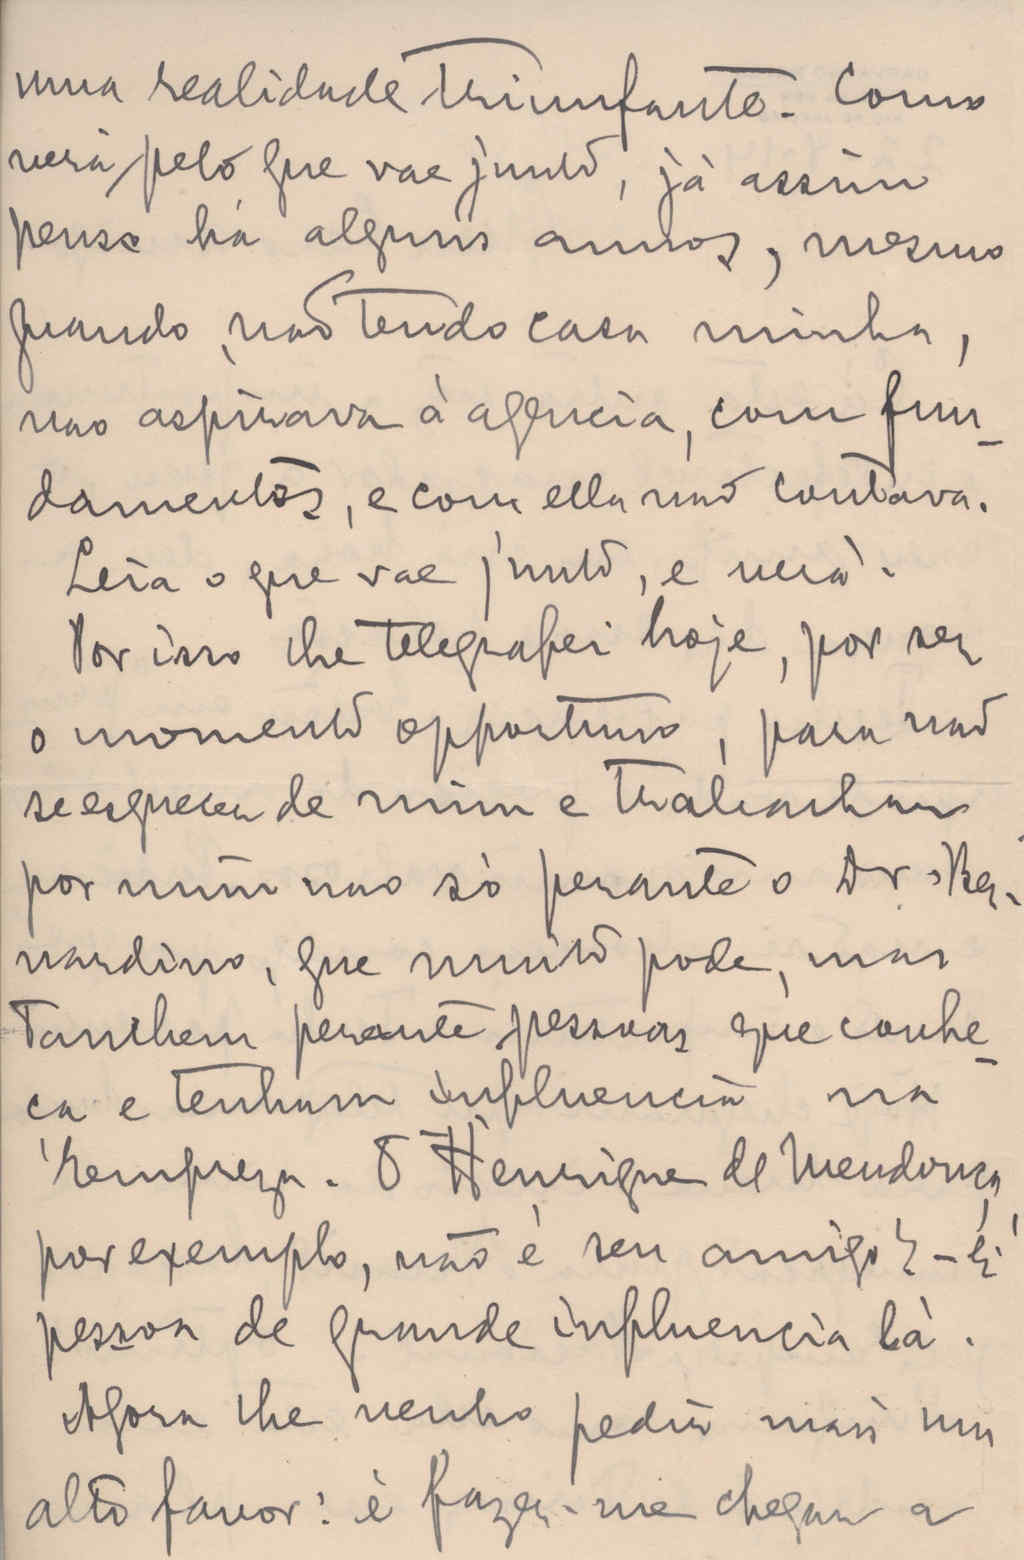 uma realidade triumfante. Como
verá, pelo que vae junto, já assim
penso há alguns annos, mesmo
quando, não tendo casa minha,
não aspirava á agencia, com fun-
damentos, e com ella não contava.
Leia o que vae junto, e verá.
Por isso lhe telegrafei hoje, por ser
o momento opportuno, para não
se esquecer de mim e trabalhar
por mim não só perante o Dr. Ber-
nardino, que muito pode, mas
tambem perante pessoas que conhe-
ça e tenham influencia na
Empreza. O Henrique de Mendonça,
por exemplo, não é seu amigo? - É
pessoa de grande influencia lá.
Agora lhe venho pedir mais um
alto favor: é fazer-me chegar a